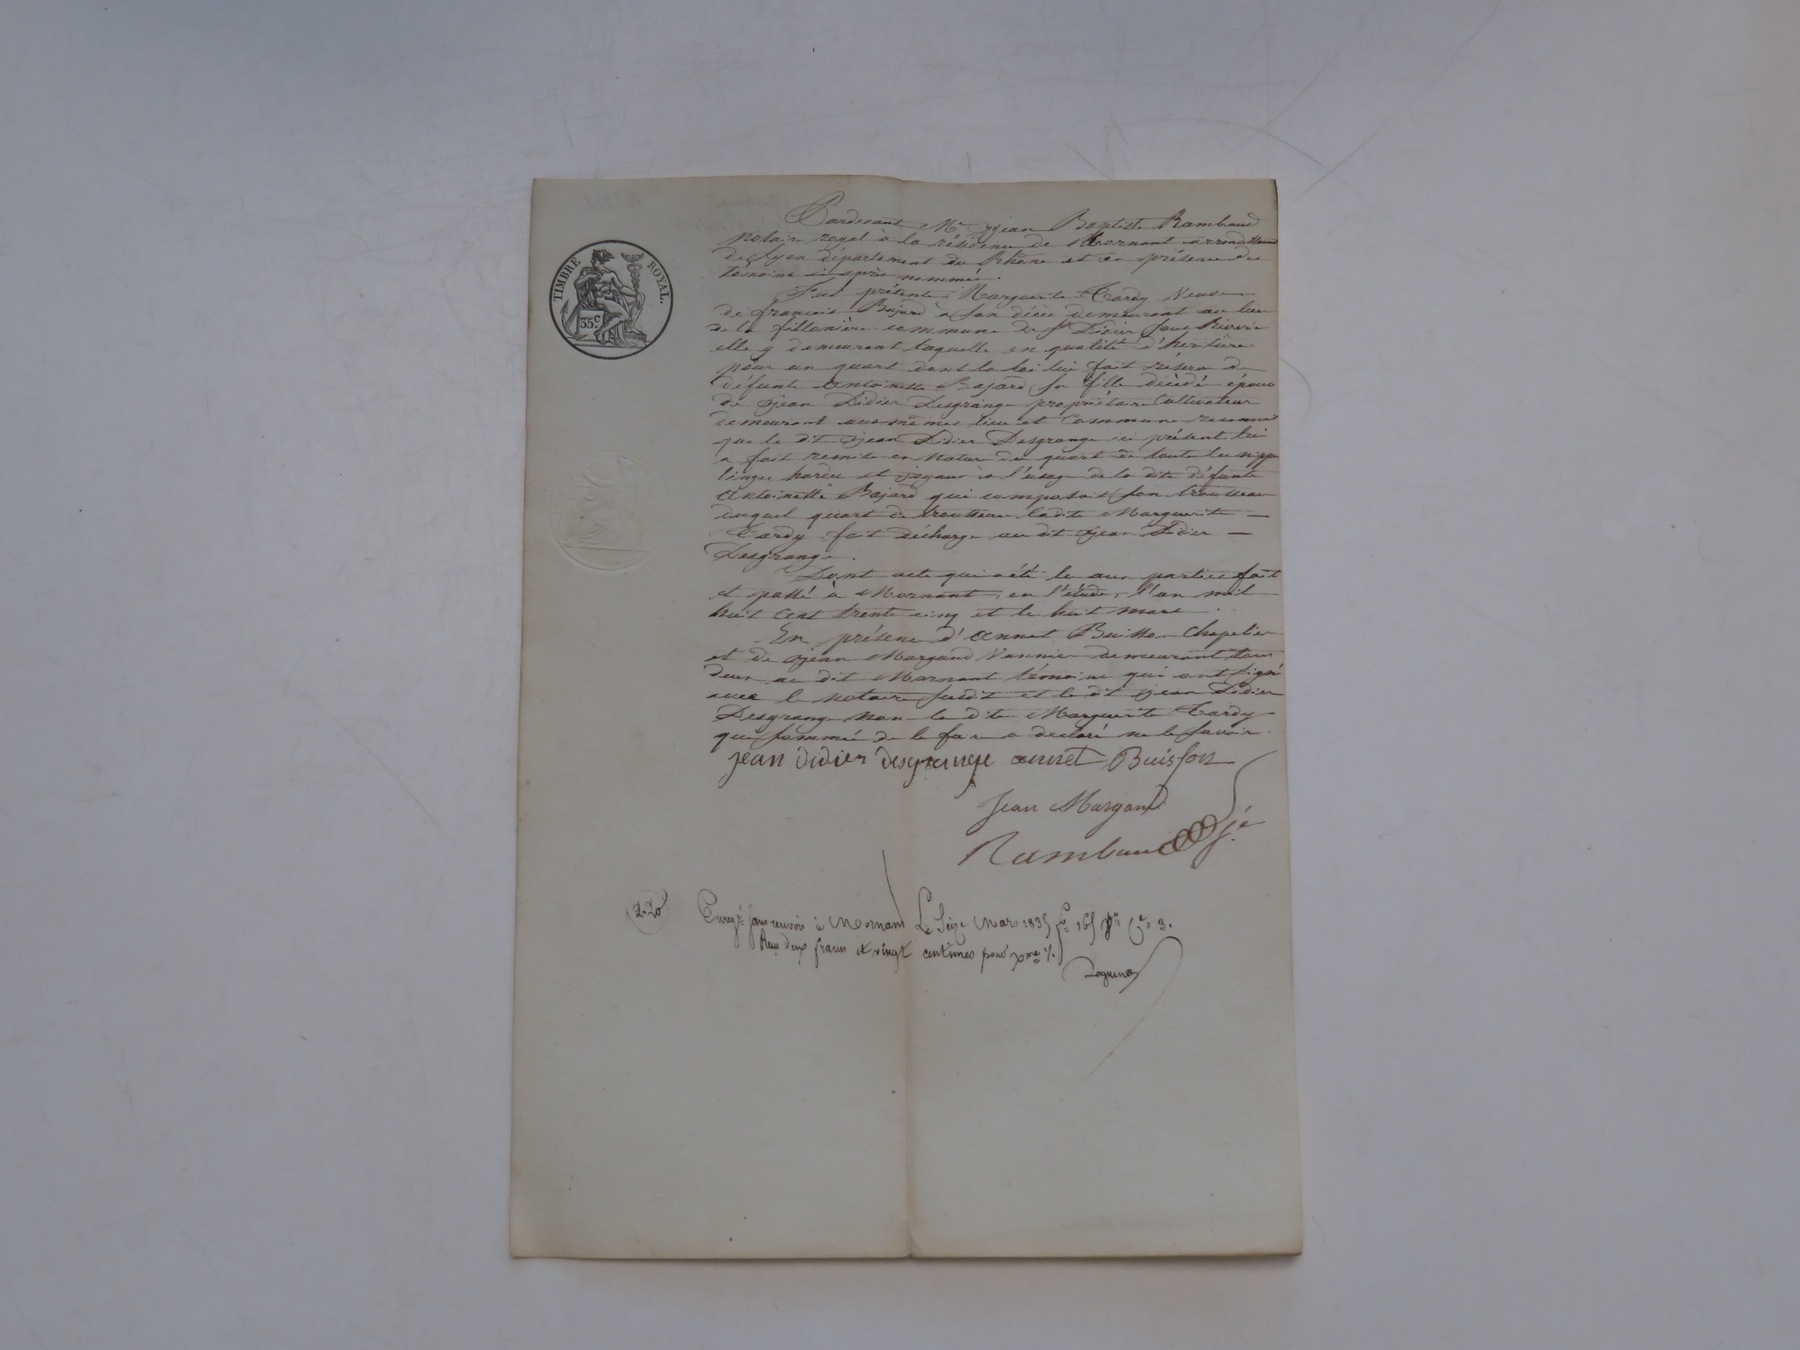 TIMBRE ROYAL.
35 c.
Pardevant Me Jean Baptiste Rambaud
Notaire royal à la résidence de Mornant arrondissement
de Lyon département du Rhône et en présence des
temoins ci après nommés.
Fut présente Marguerite Tardy Veuve
de françois Bajard à son décès demeurant au lieu
de la fillonière commune de St Didier sous Riverie
elle y demeurant laquelle en qualité d'héritière
pour un quart dont la loi lui fait réserve de
défunte Antoinette Bajard sa fille décédé épouse
de Jean Didier Desgrange propriétaire Cultivateur
demeurant aux mêmes lieu et Commune reconnu
que le dit Jean Didier Desgrange ici présent lui
a fait remise en nature du quart de toute les nippes
linges hardes et joyaux à l'usage de la dite défunte
Antoinette Bajard qui composait son trousseau
duquel quart de trousseau ladite Marguerite
Tardy fait décharge au dit Jean Didier
Desgrange.
Dont acte qui a été lu aux parties fait
et passé à Mornant, en l'étude, l'an mil
huit cent trente cinq et le huit mars
En présence d'Annet Buisson Chapelier
et de Jean Margand Vannier demeurant tous
deux au dit Mornant témoins qui ont signé
avec le notaire susdit et le dit Jean Didier
Desgrange non la dite Marguerite Tardy
qui sommée de le faire a déclaré ne le savoir.
jean didier desgrange annet Buisson
Jean Margand
Rambaud
2.20
Enregé sans renvois à Mornant Le Seize Mars 1835 fo 165 Ces 3.
Reçu deux francs et vingt centimes pour xme %